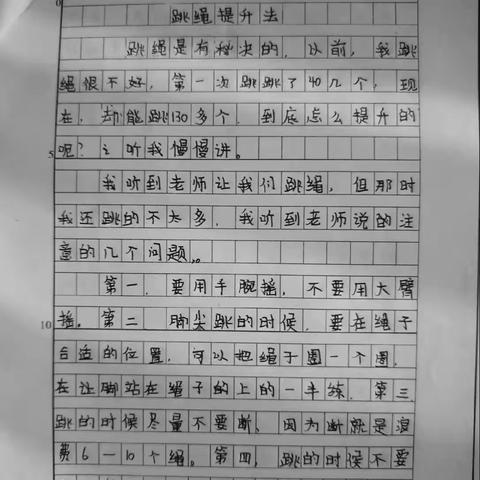 跳绳提升法
跳绳是有秘决的。以前，我跳
绳很不好，第一次跳跳了40几个，现
在，却能跳130多个。到底怎么提升的
5 呢？听我慢慢讲。
我听到老师让我们跳绳，但那时
我还跳的不太多，我听到老师说的注
意的几个问题。
第一，要用手腕摇，不要用大臂
10 摇。第二，脚尖跳的时候，要在绳子
合适的位置，可以把绳子圈一个圈，
在让脚站在绳子的上的一半练。第三，
跳的时候尽量不要断，因为断就是浪
费6一10个绳。第四，跳的时候不要